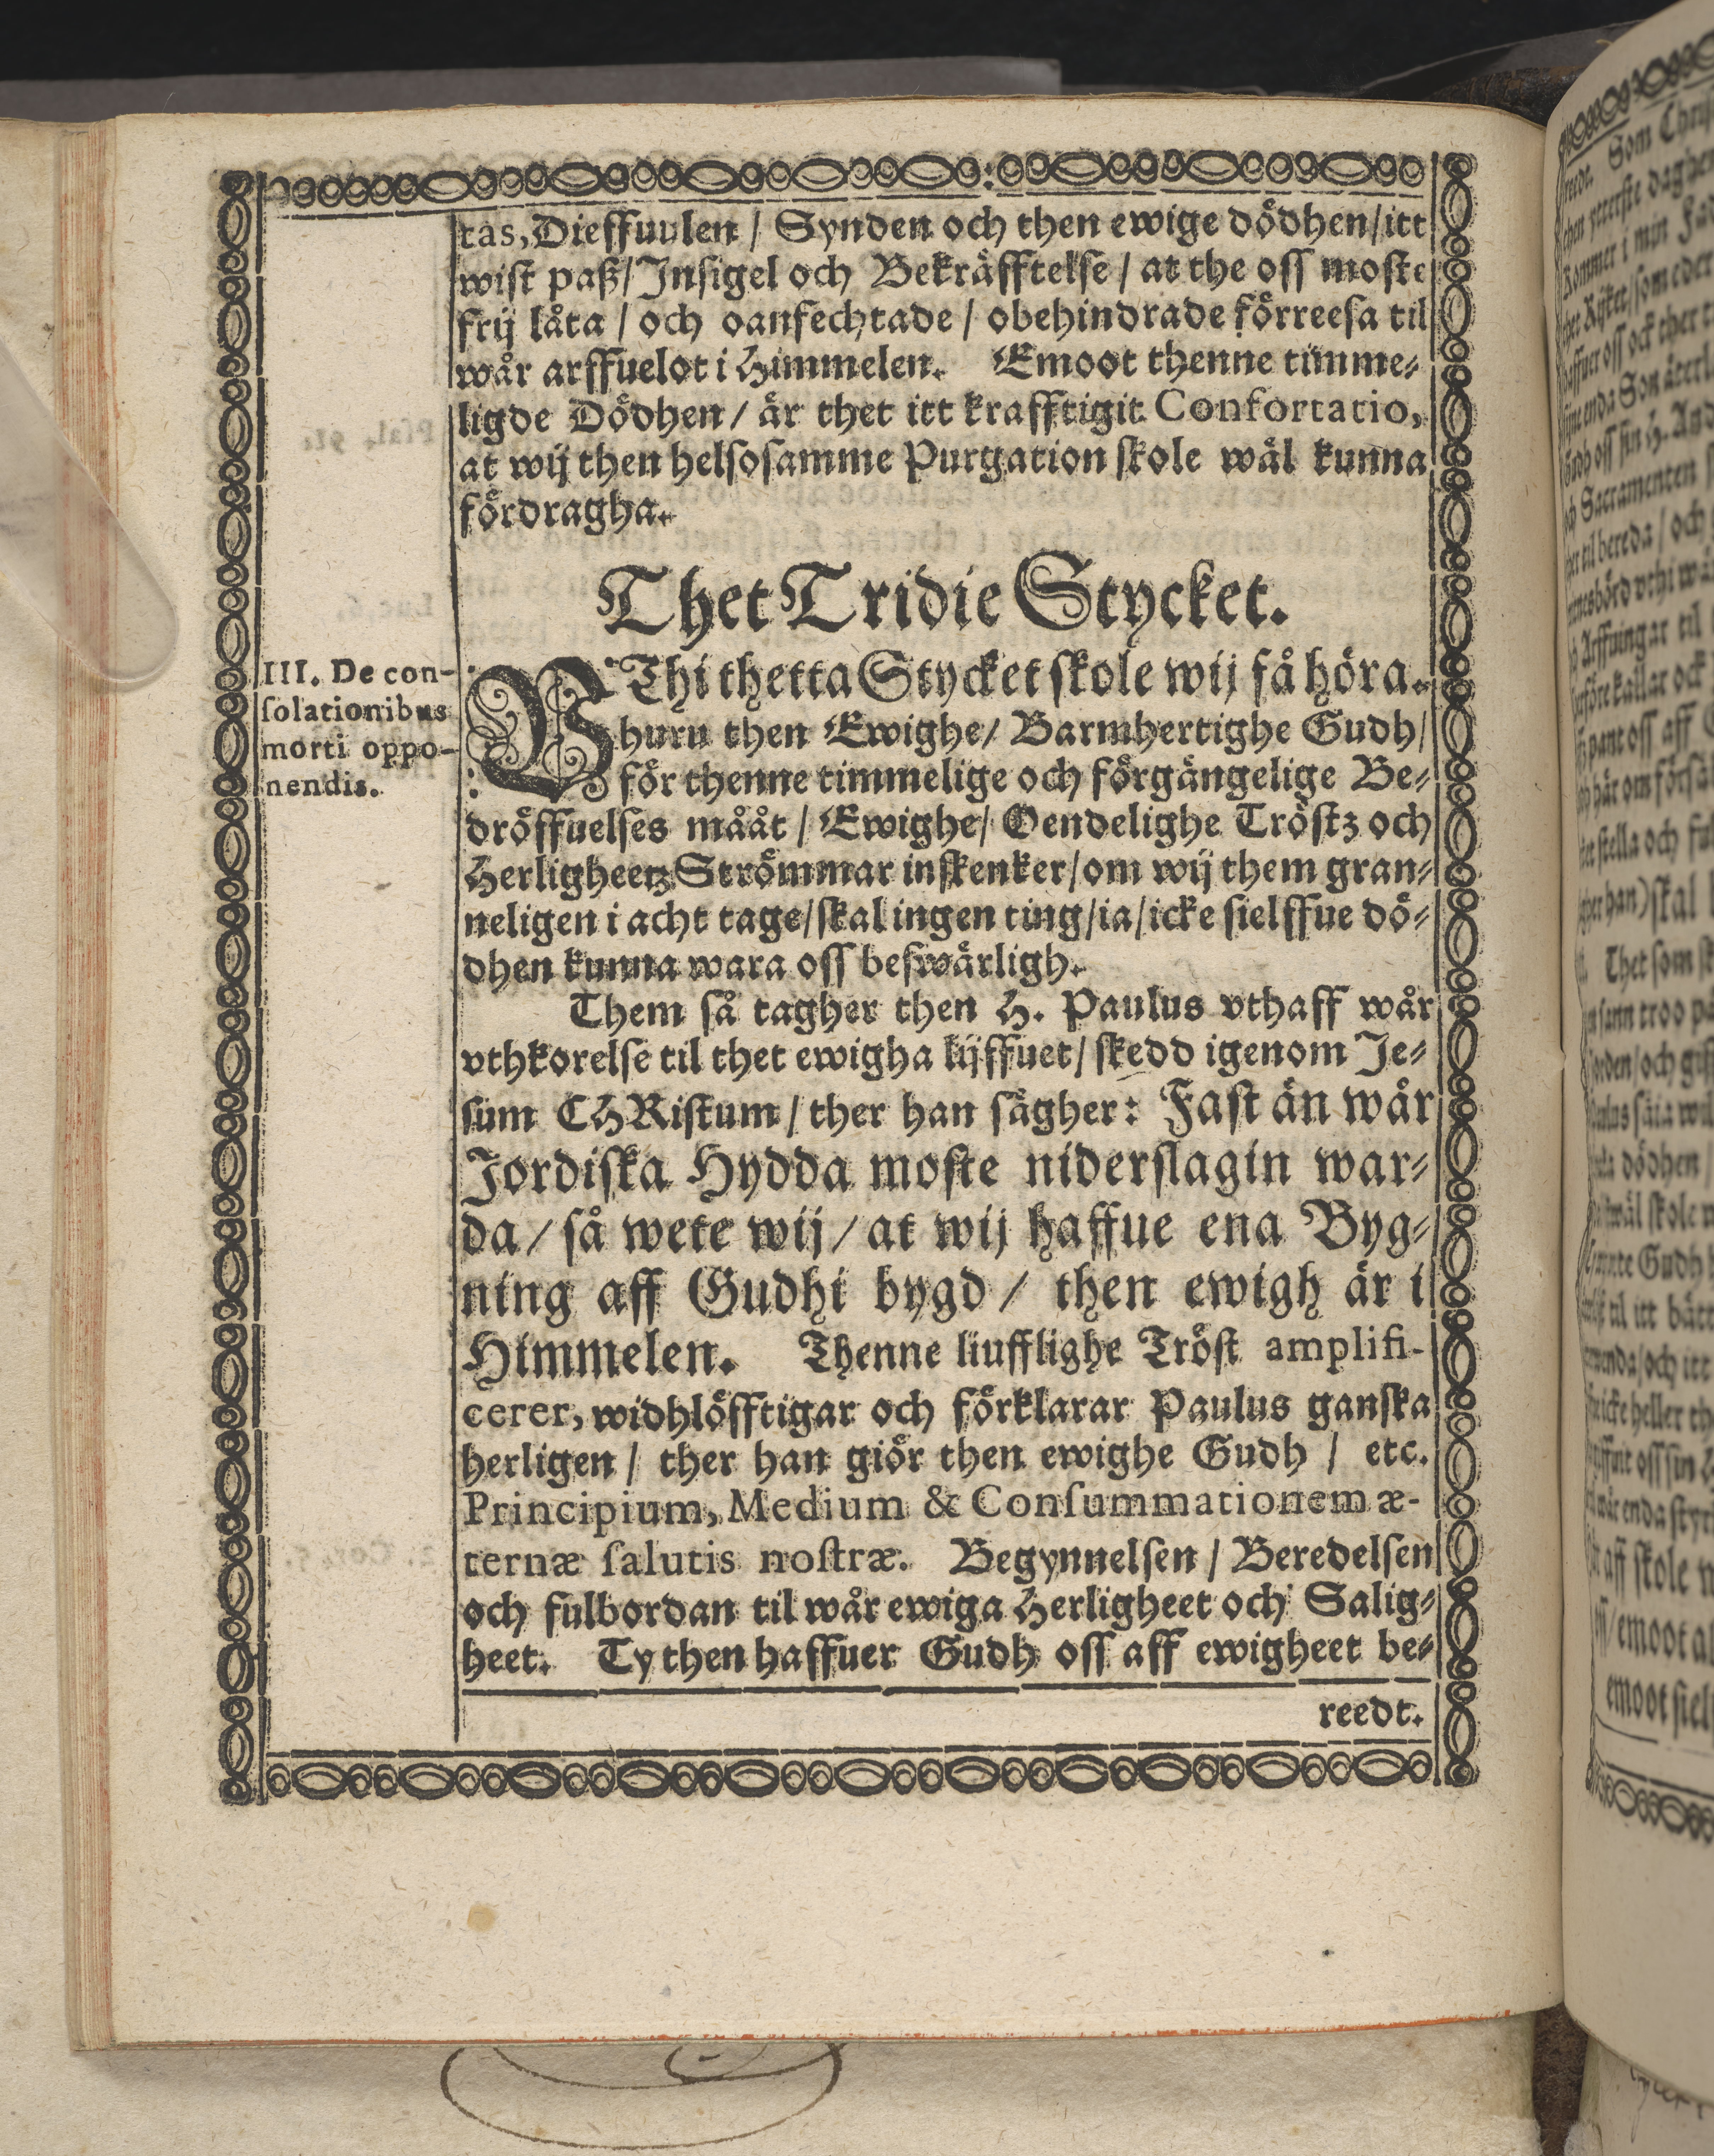 tas, Dieffuulen / Synden och then ewige dödhen / itt
wist paß / Insigel och Bekräfftelse / at the oss moste
frij låta / och oanfechtade / obehindrade förreesa til
wår arffuelot i Himmelen. Emoot thenne timme-
ligde Dödhen / är thet itt krafftigit Confortatio,
at wij then helsosamme Purgation skole wäl kunna
fördragha.
Thet Tridie Stycket.
III. De con-
solationibus
morti oppo-
nendis.
VThi thetta Stycket skole wij få höra.
huru then Ewighe / Barmhertighe Gudh /
för thenne timmelige och förgängelige Be-
dröffuelses mååt / Ewighe / Oendelighe Tröstz och
Herligheetz Strömmar inskenker / om wij them gran-
neligen i acht tage / skal ingen ting / ia / icke sielffue dö-
dhen kunna wara oss beswärligh.
Them så tagher then H. Paulus vthaff wår
vthkorelse til thet ewigha lijffuet / skedd igenom Je-
sum CHRistum / ther han sägher: Fast än wår
Jordiska Hydda moste niderslagin war-
da / så wete wij / at wij haffue ena Byg-
ning aff Gudhi bygd / then ewigh är i
Himmelen. Thenne liufflighe Tröst amplifi-
cerer, widhlöfftigar och förklarar Paulus ganska
herligen / ther han giör then ewighe Gudh / etc.
Principium, Medium & Consummationem æ-
ternæ salutis nostræ. Begynnelsen / Beredelsen
och fulbordan til wår ewiga Herligheet och Salig-
heet. Ty then haffuer Gudh oss aff ewigheet be-
reedt.